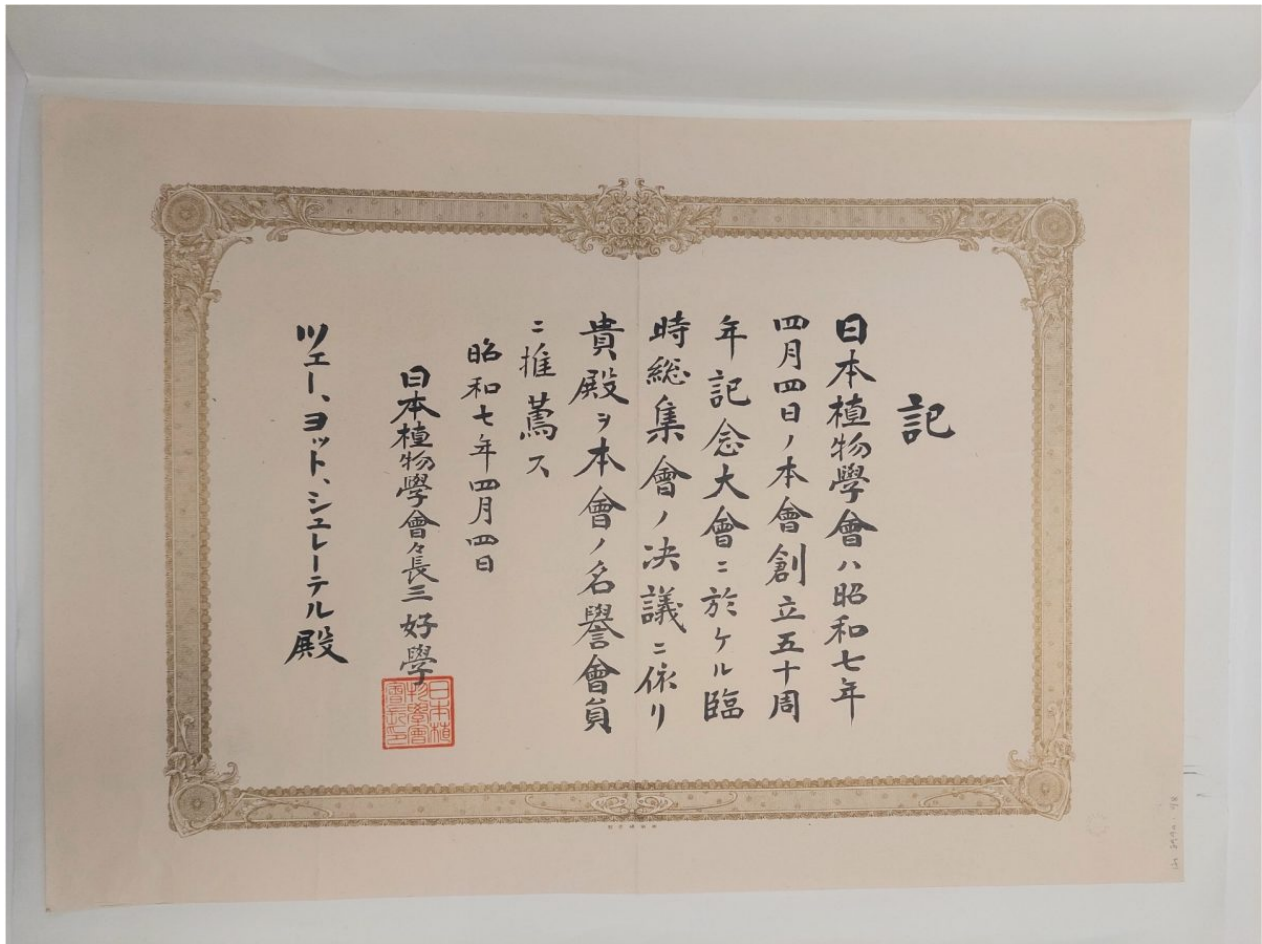 記
日本植物學會ハ昭和七年
四月四日ノ本會創立五十周
年記念大會ニ於ケル臨
時総集會ノ決議ニ依リ
貴殿ヲ本會ノ名譽會員
ニ推薦ス
昭和七年四月四日
日本植物學會々長三好學
日本植
物學會
會長印
ツェー、ヨット、シュレーテル殿